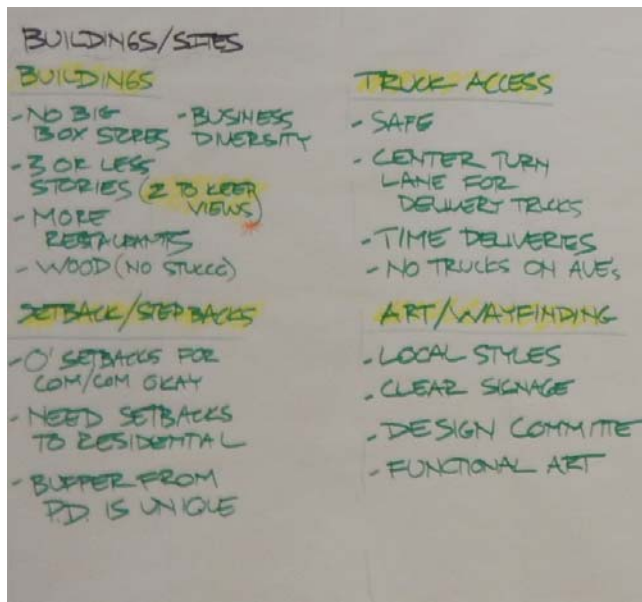 BUILDINGS/SITES
BUILDINGS
- NO BIG
BOX STORES
- BUSINESS
DIVERSITY
- 3 OR LESS
STORIES (2 TO KEEP
VIEWS)
*
- MORE
RESTAURANTS
- WOOD (NO STUCCO)
SETBACK/STEPBACKS
- 0' SETBACKS FOR
COM/COM OKAY
- NEED SETBACKS
TO RESIDENTIAL
- BUFFER FROM
P.D. IS UNIQUE
TRUCK ACCESS
- SAFE
- CENTER TURN
LANE FOR
DELIVERY TRUCKS
- TIME DELIVERIES
- NO TRUCKS ON AVE's
ART/WAYFINDING
- LOCAL STYLES
- CLEAR SIGNAGE
- DESIGN COMMITTE
- FUNCTIONAL ART